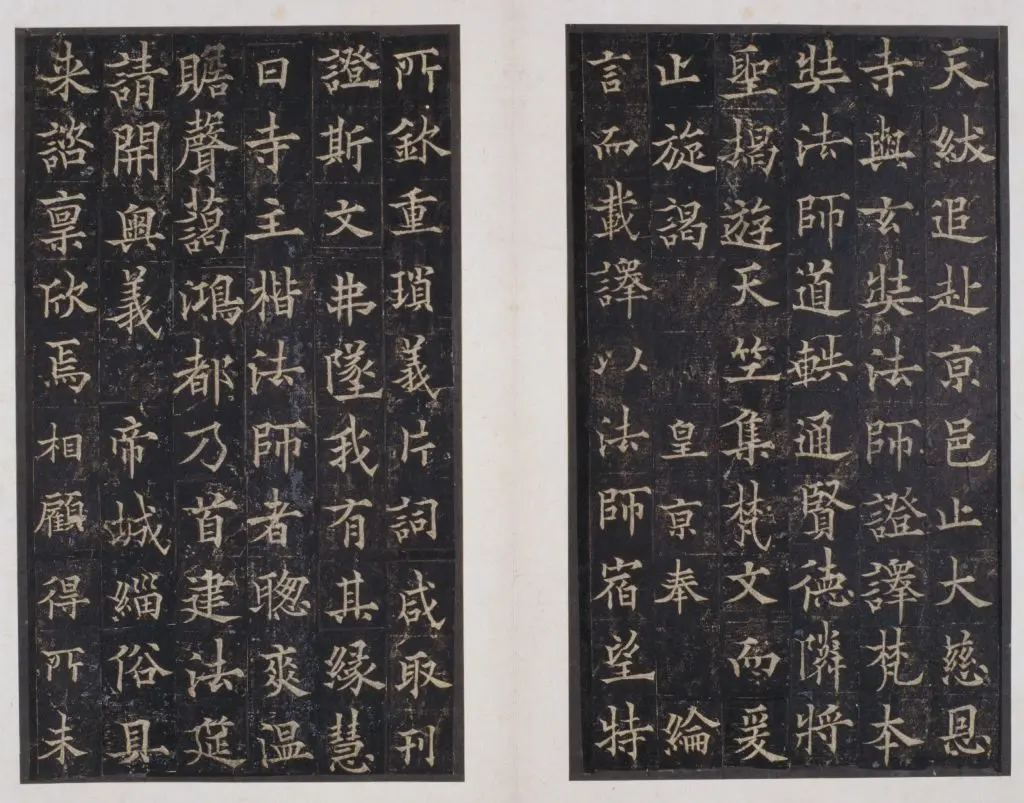 天紱追赴京邑止大慈恩
寺與玄奘法師證譯梵本
奘法師道軼通賢德隣將
聖揭遊天竺集梵文而爰
止旋謁 皇京奉 綸
言而載譯以法師宿望特
所欽重瑣義片詞咸取刊
證斯文弗墜我有其緣慧
日寺主楷法師者聰爽温
贍聲藹鴻都乃首建法筵
請開奧義 帝城緇俗具
来諮稟欣焉相顧得所未